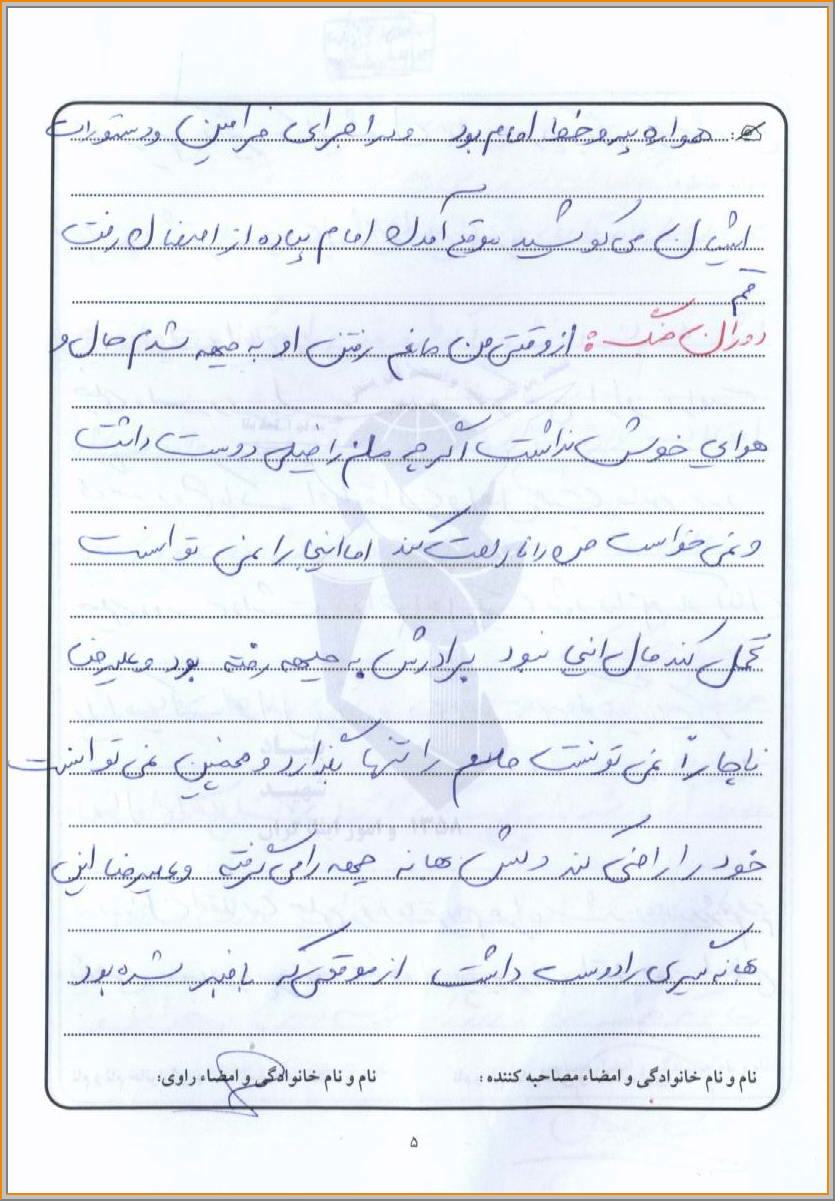 همواره پیرو خط امام بود و در اجرای فرامین و دستورات
ایشان می کوشید موقع آمدن امام پیاده از اصفهان رفت
قم
دوران جنگ: از وقتی من مانع رفتن او به جبهه شدم حال و
هوای خوش نداشت اگر چه من را خیلی دوست داشت
و نمی خواست من را ناراحت کند اما اینجا را نمی توانست
تحمل کند مال اینجا نبود برادرش به جبهه رفته بود و علیرضا
ناچاراً نمی تونست را تنها بگذارد و همچنین نمی توانست
خود را راضی کند دلش بهانه جبهه را می گرفت و علیرضا این
بهانه گیری را دوست داشت از موقعی که باخبر شده بود
نام و نام خانوادگی و امضاء مصاحبه کننده: نام و نام خانوادگی و امضاء راوی:
۵